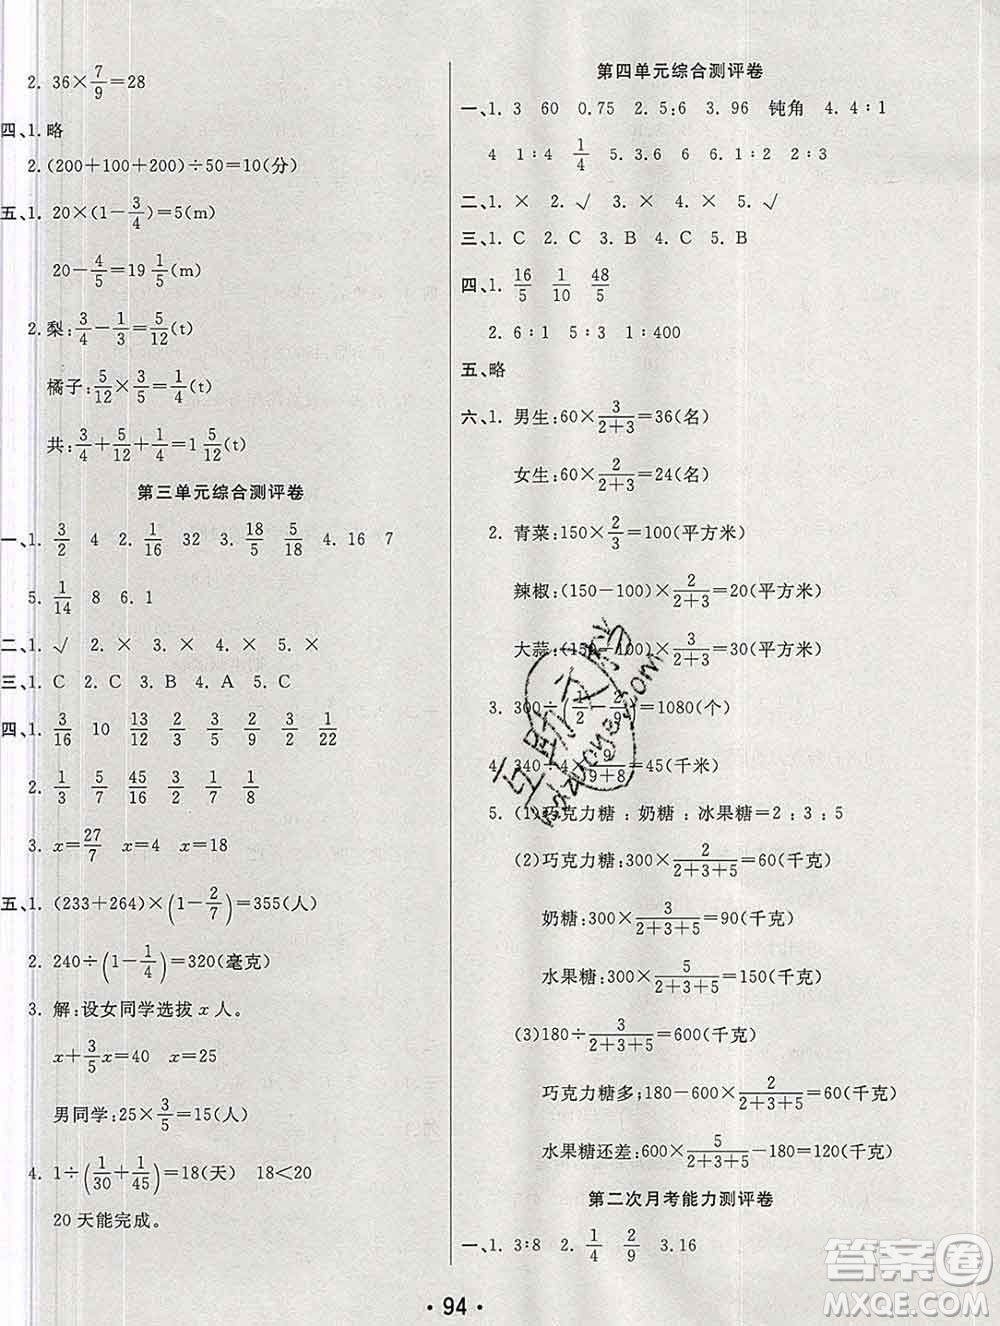 2. 36×7/9=28
四、1. 略
2. (200+100+200)÷50=10(分)
五、1. 20×(1−3/4)=5(m)
20−4/5=19 1/5(m)
2. 梨:3/4−1/3=5/12(t)
橘子:5/12×3/5=1/4(t)
共:3/4+5/12+1/4=1 5/12(t)
第三单元综合测评卷
一、1. 3/2 4 2. 1/16 32 3. 18/5 5/18 4. 16 7
5. 1/14 8 6. 1
二、1. √ 2. × 3. × 4. × 5. ×
三、1. C 2. C 3. B 4. A 5. C
四、1. 3/16 10 13/12 2/3 2/3 3/2 1/22
2. 1/3 5/7 45/16 3/2
3. x=27/7 x=4 x=18
五、1. (233+264)×(1−2/7)=355(人)
2. 240÷(1−1/4)=320(毫克)
3. 解:设女同学选拔 x 人。
x+3/5x=40 x=25
男同学:25×3/5=15(人)
4. 1÷(1/30+1/45)=18(天) 18<20
20 天能完成。
第四单元综合测评卷
一、1. 3 60 0.75 2. 5:6 3. 96 钝角 4. 4:1
4 1:4 1/4 5. 3.6 6. 1:2 2:3
二、1. × 2. √ 3. × 4. × 5. √
三、1. C 2. C 3. B 4. C 5. B
四、1. 16/5 1/10 48/5
2. 6:1 5:3 1:400
五、略
六、1. 男生:60×3/(2+3)=36(名)
女生:60×2/(2+3)=24(名)
2. 青菜:150×2/3=100(平方米)
辣椒:(150−100)×2/(2+3)=20(平方米)
大蒜:(150−100)×3/(2+3)=30(平方米)
3. 300÷(1/2−2/9)=1080(个)
4. 340÷4×9/(9+8)=45(千米)
5. (1)巧克力糖:奶糖:水果糖=2:3:5
(2)巧克力糖:300×2/(2+3+5)=60(千克)
奶糖:300×3/(2+3+5)=90(千克)
水果糖:300×5/(2+3+5)=150(千克)
(3)180÷3/(2+3+5)=600(千克)
巧克力糖多;180−600×2/(2+3+5)=60(千克)
水果糖还差:600×5/(2+3+5)−180=120(千克)
第二次月考能力测评卷
一、1. 3:8 2. 1/4 2/9 3. 16
·94·
答案圈
MXQE.COM